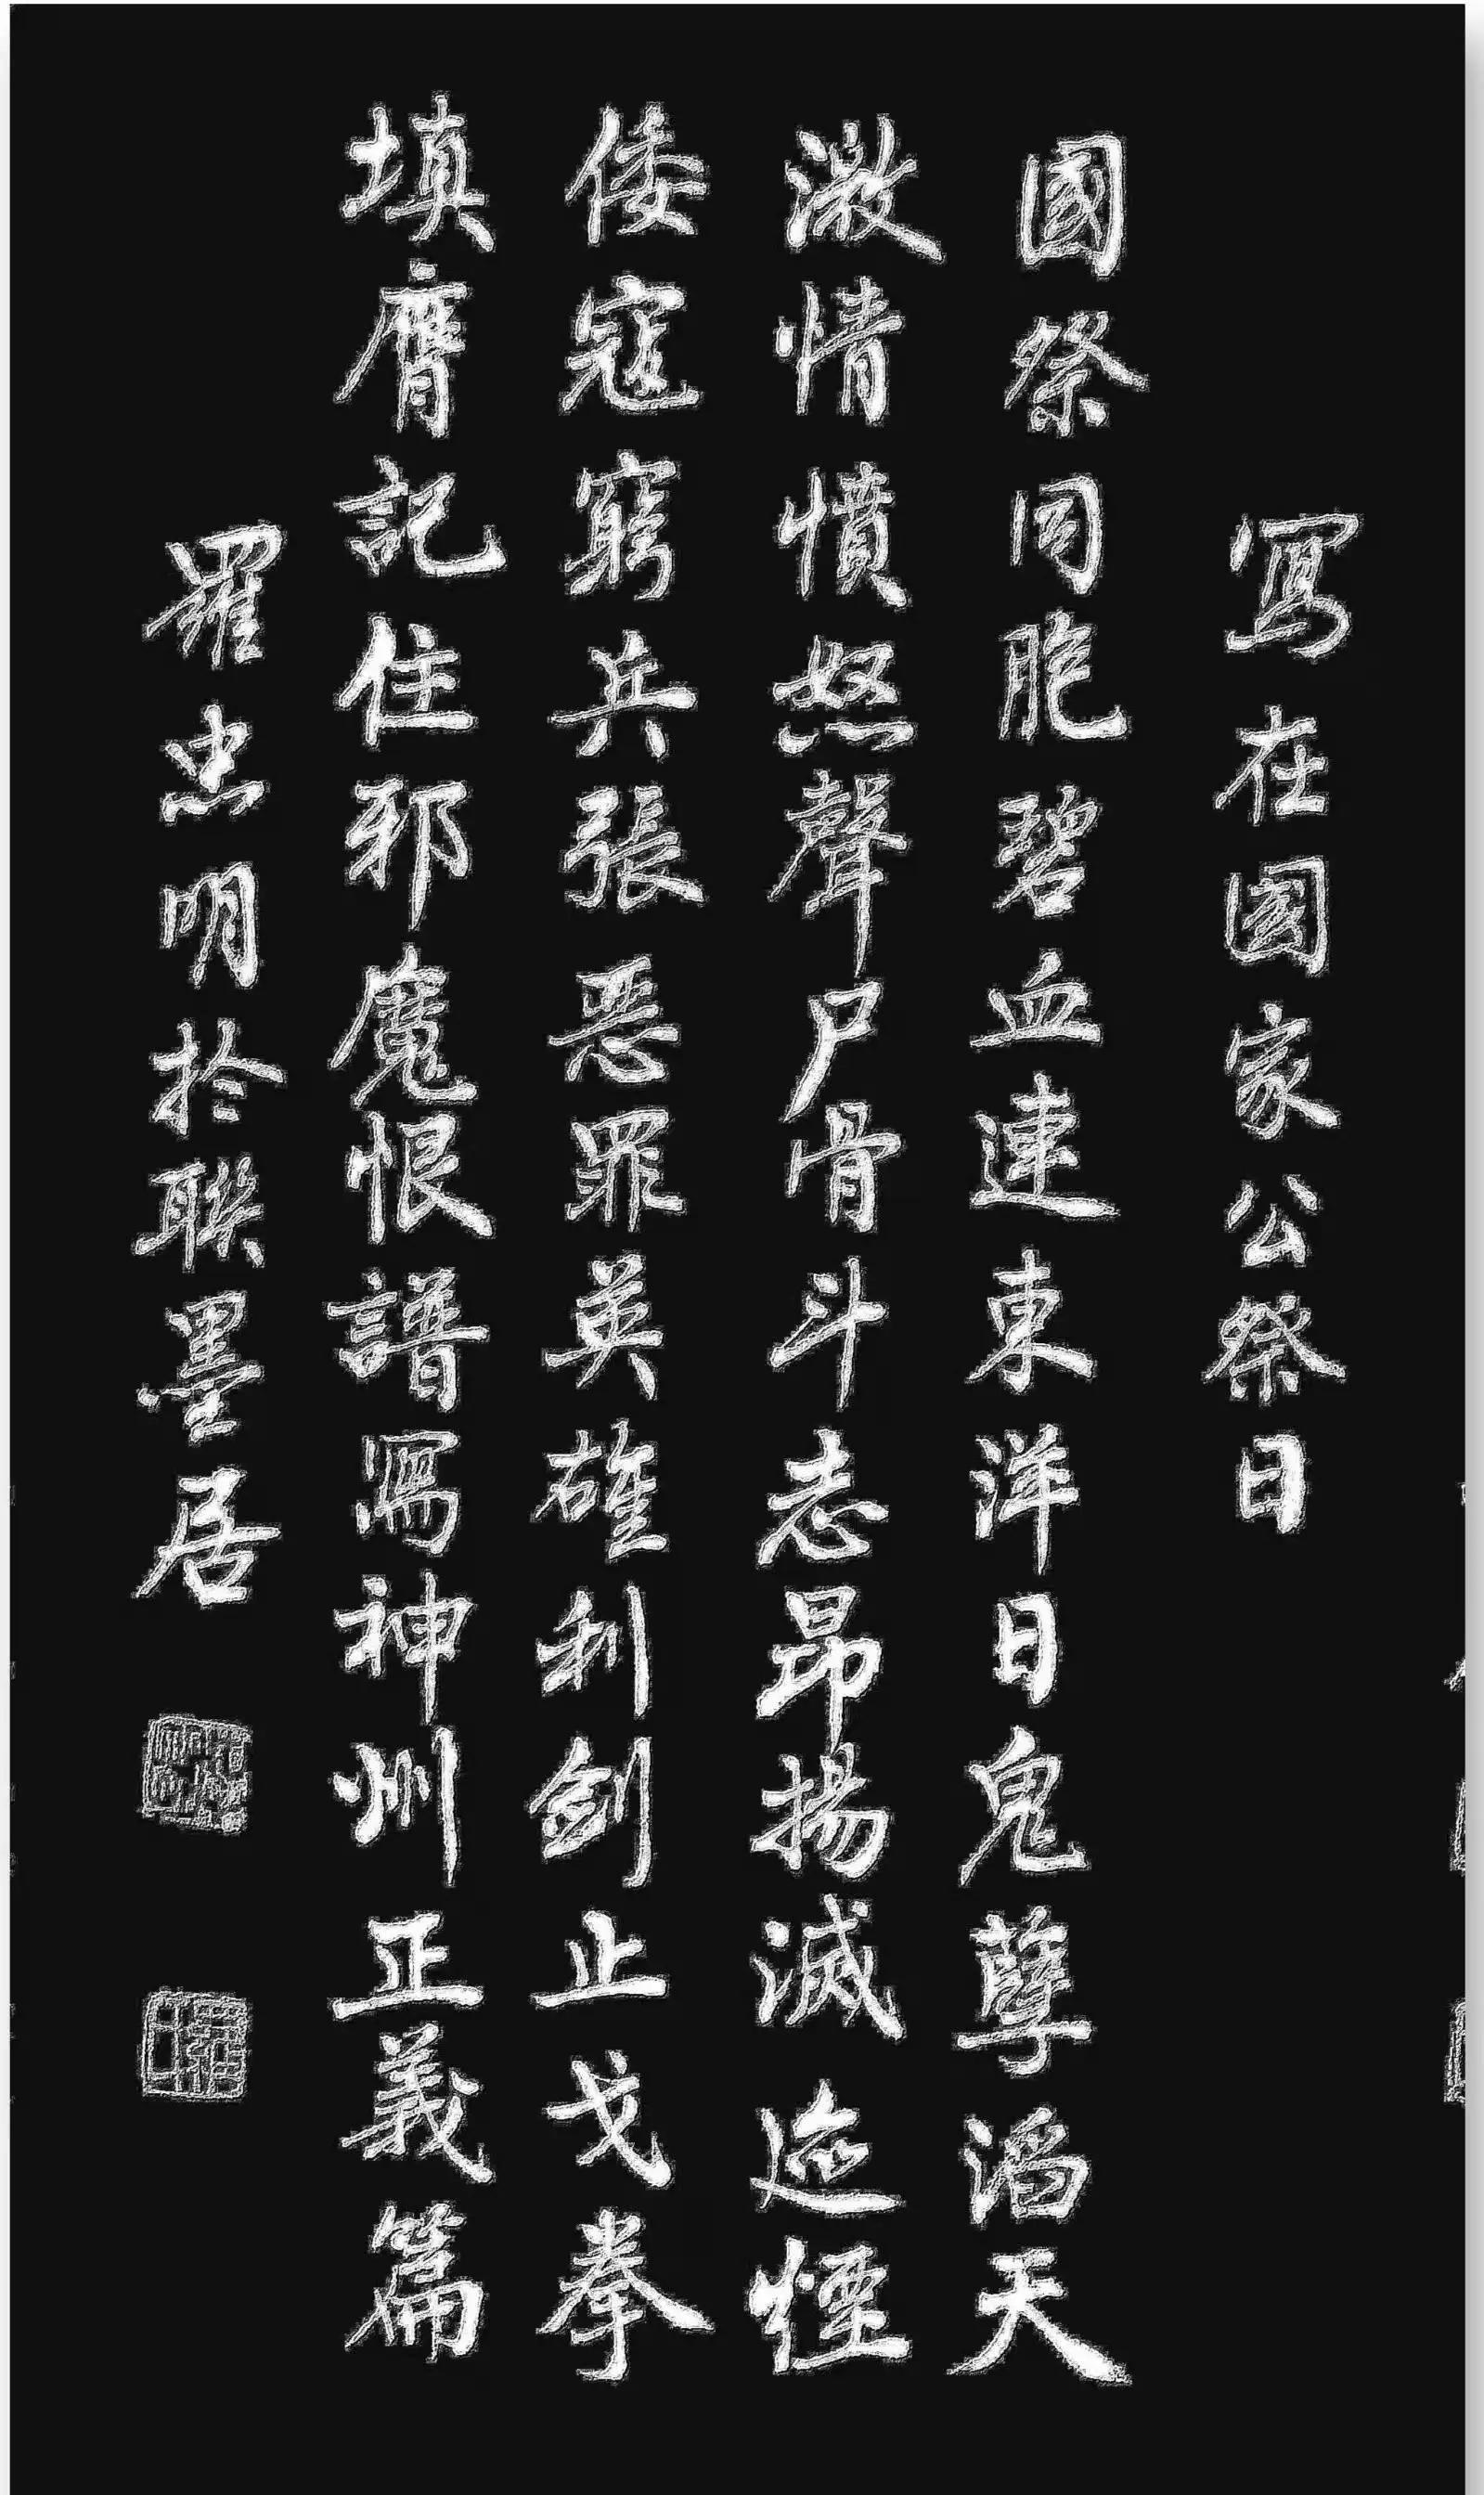 寫在國家公祭日
國祭同胞碧血連東洋日鬼孽滔天
激情憤怒聲尸骨斗志昂揚滅煙
倭寇窮兵張惡罪英雄利劍止戈拳
填膺記住邪魔恨譜寫神州正義篇
羅忠明於聯墨居